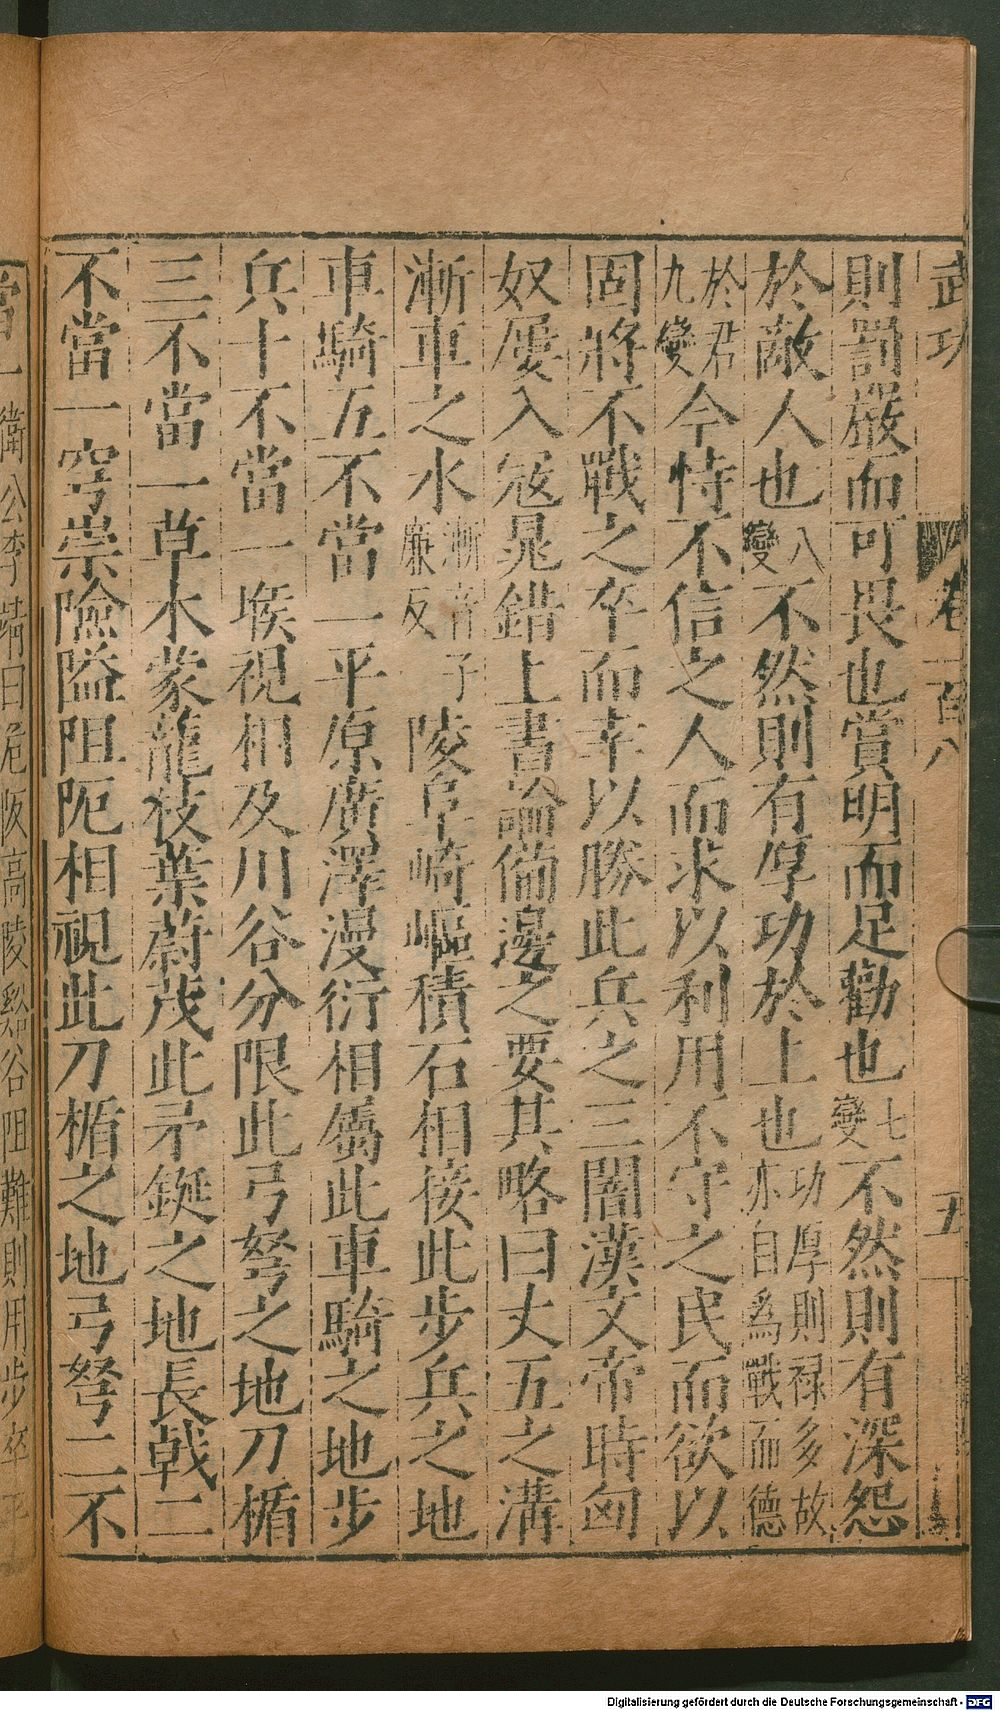 武功
卷一百八
五
則罰嚴而可畏也賞明而足勸也七變不然則有深怨
於敵人也八變不然則有厚功於上也功厚則禄多故亦自爲戰而德
於君九變今恃不信之人而求以利用不守之民而欲以
固將不戰之卒而幸以勝此兵之三闇漢文帝時匈
奴屢入寇晁錯上書論備邊之要其略曰丈五之溝
漸車之水漸音子廉反陵阜崎嶇積石相接此步兵之地
車騎五不當一平原廣澤漫衍相屬此車騎之地步
兵十不當一堠視相及川谷分限此弓弩之地刀楯
三不當一草木蒙蘢枝葉蔚茂此矛鋋之地長戟二
不當一穹崇險隘阻阨相視此刀楯之地弓弩二不
當一衛公李靖曰危阪高陵谿谷阻難則用步卒平
Digitalisierung gefördert durch die Deutsche Forschungsgemeinschaft - DFG